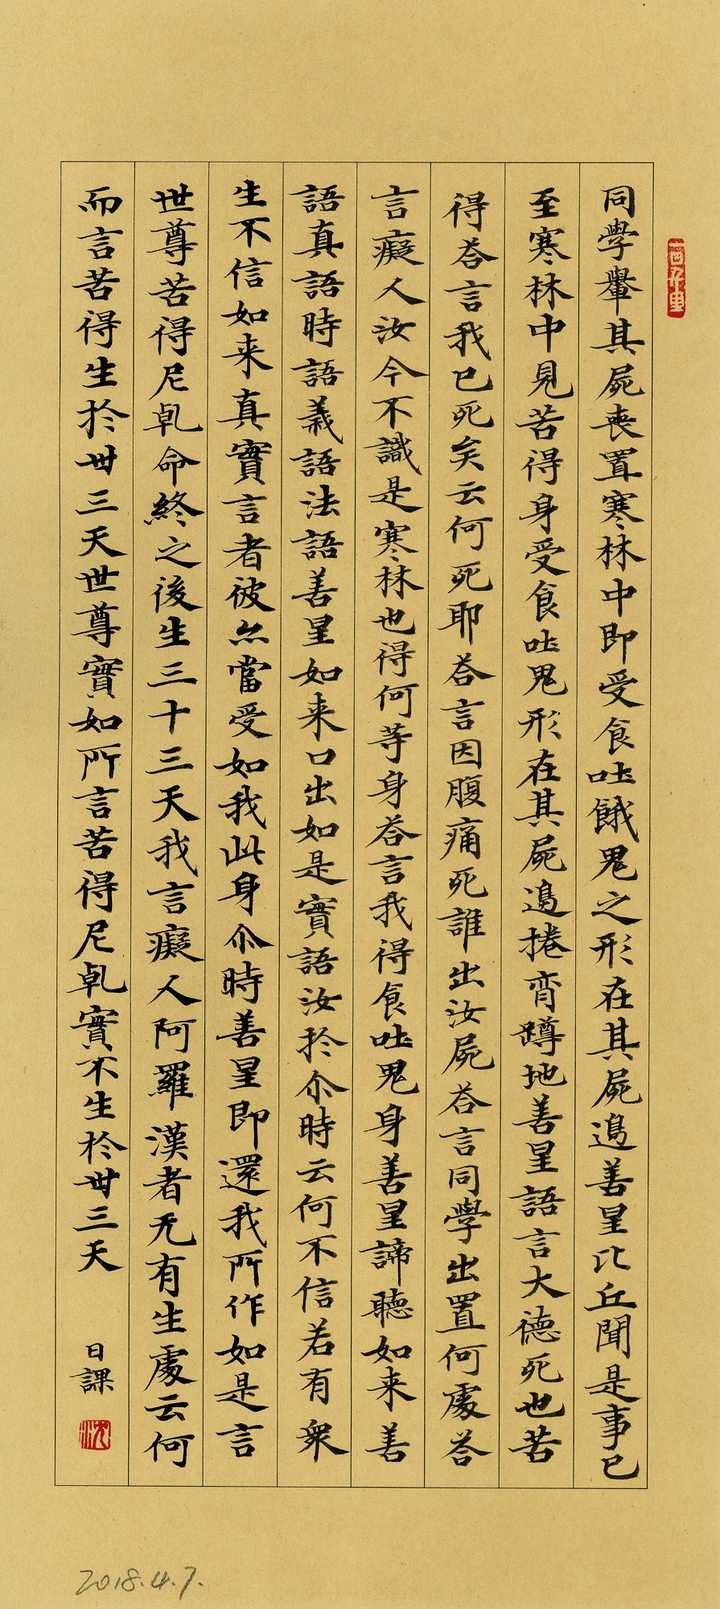 同學轝其屍喪置寒林中即受食吐餓鬼之形在其屍邊善星比丘聞是事已
至寒林中見苦得身受食吐鬼形在其屍邊捲脊蹲地善星語言大德死也苦
得荅言我已死矣云何死耶荅言因腹痛死誰出汝屍荅言同學出置何處荅
言癡人汝今不識是寒林也得何等身荅言我得食吐鬼身善星諦聽如来善
語真語時語義語法語善星如来口出如是實語汝於尒時云何不信若有衆
生不信如来真實言者彼亦當受如我此身尒時善星即還我所作如是言
世尊苦得尼乹命終之後生三十三天我言癡人阿羅漢者无有生處云何
而言苦得生於卅三天世尊實如所言苦得尼乹實不生於卅三天
日課
沈
2018.4.7.